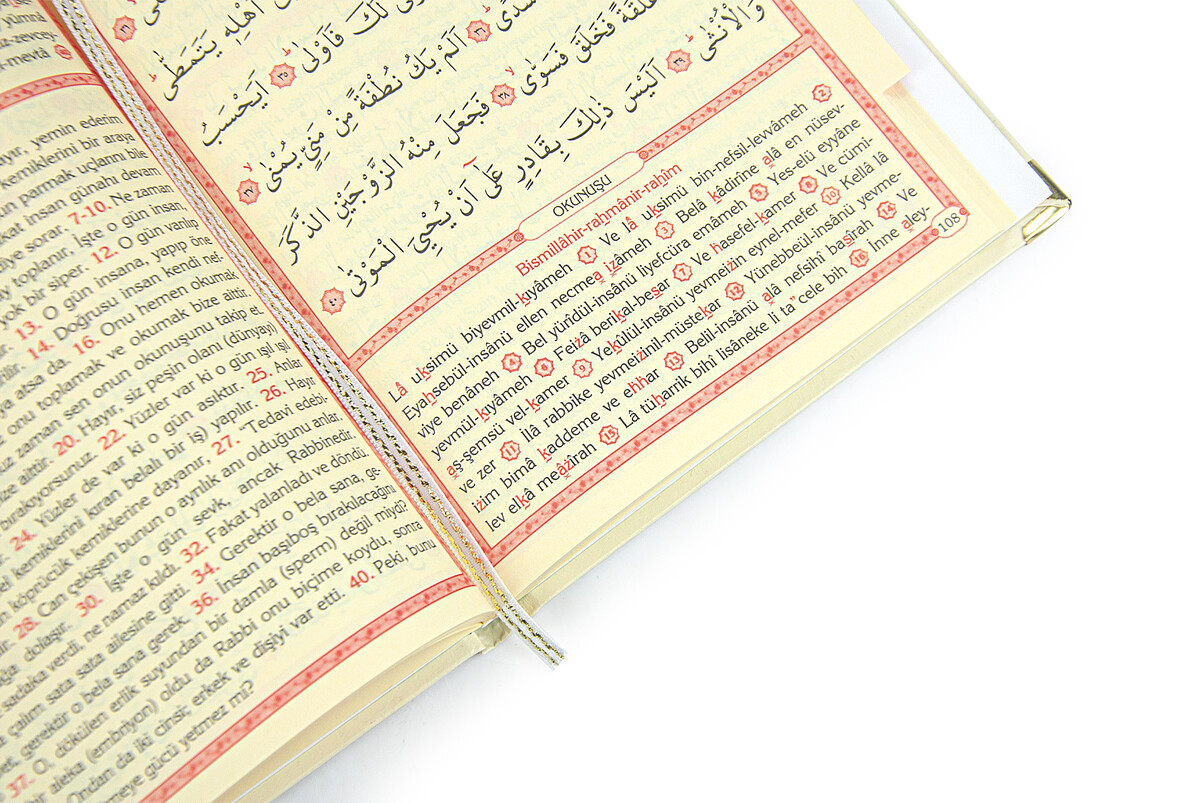 yümnâ
z-zevcey-
k-mevtâ
ayır, yemin ederim
kemiklerini bir araya
ün parmak uçlarını bile
kat insan günahı devam
diye sorar. 7-10. Ne zaman
y toplanır, İşte o gün insan,
yok bir siper. 12. O gün varılıp
r. 13. O gün insana, yapıp öne
ilir. 14. Doğrusu insan kendi nef-
ya atsa da. 16. Onu hemen okumak
z onu toplamak ve okumak bize aittir.
uz zaman sen onun okunuşunu takip et.
ize aittir. 20. Hayır, siz peşin olanı (dünyayı)
bırakıyorsunuz. 22. Yüzler var ki o gün ışıl ışıl
r. 24. Yüzler de var ki o gün asıktır. 25. Anlar
el kemiklerini kıran belalı bir iş) yapılır. 26. Hayır
n köprücük kemiklerine dayanır, 27. "Tedavi edebi-
ir. 28. Can çekişen bunun o ayrılık anı olduğunu anlar.
ağa dolaşır. 30. İşte o gün sevk, ancak Rabbinedir.
sadaka verdi, ne namaz kıldı. 32. Fakat yalanladı ve döndü.
a çalım sata sata ailesine gitti. 34. Gerektir o bela sana, ge-
er, gerektir o bela sana gerek. 36. İnsan başıboş bırakılacağını
37. O, dökülen erlik suyundan bir damla (sperm) değil miydi?
bir aleka (embriyon) oldu da Rabbi onu biçime koydu, sonra
Ondan da iki cinsi; erkek ve dişiyi var etti. 40. Peki, bunu
meye gücü yetmez mi?
اَهْلِهٖ يَتَمَطّٰى
لَكَ فَاَوْلٰى ﴿٣٥﴾ اَيَحْسَبُ
سُدًى ﴿٣٦﴾ اَلَمْ يَكُ نُطْفَةً مِنْ مَنِيٍّ يُمْنٰى ﴿٣٧﴾
عَلَقَةً فَخَلَقَ فَسَوّٰى ﴿٣٨﴾ فَجَعَلَ مِنْهُ الزَّوْجَيْنِ الذَّكَرَ
وَالْاُنْثٰى ﴿٣٩﴾ اَلَيْسَ ذٰلِكَ بِقَادِرٍ عَلٰٓى اَنْ يُحْيِيَ الْمَوْتٰى ﴿٤٠﴾
OKUNUŞU
Bismillâhir-rahmânir-rahîm
Lâ uksimü biyevmil-kıyâmeh 1 Ve lâ uksimü bin-nefsil-levvâmeh 2
Eyahsebül-insânü ellen necmea izâmeh 3 Belâ kâdirîne alâ en nüsev-
viye benâneh 4 Bel yürîdül-insânü liyefcüra emâmeh 5 Yes-elü eyyâne
yevmül-kıyâmeh 6 Feizâ berikal-besar 7 Ve hasefel-kamer 8 Ve cümi-
aş-şemsü vel-kamer 9 Yekûlül-insânü yevmeizin eynel-mefer 10 Kellâ lâ
ve zer 11 İlâ rabbike yevmeizinil-müstekar 12 Yünebbeül-insânü yevme-
izim bimâ kaddeme ve ehhar 13 Belil-insânü alâ nefsihî basîrah 14 Ve
lev elkâ meâzîrah 15 Lâ tüharrik bihî lisâneke li ta" cele bih 16 İnne aley-
108